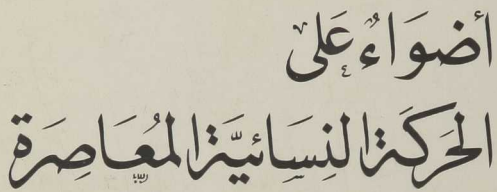 أضوَاءٌ عَلى
الحَركَة النِسَائيَّة المُعَاصِرَة